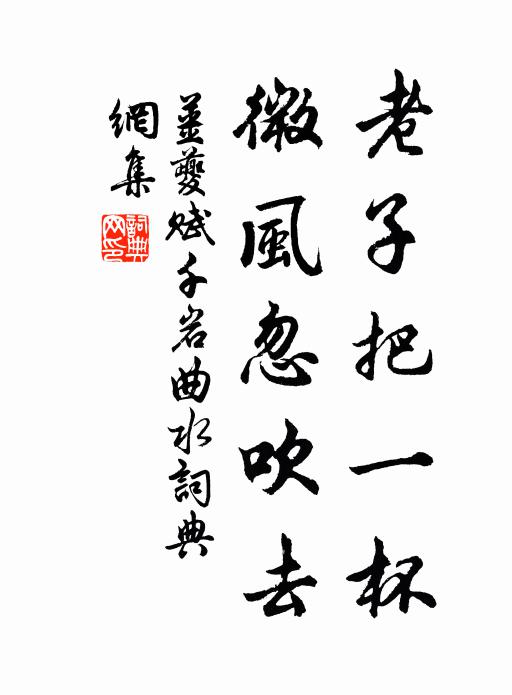 老子把一杯
微風忽吹去
姜夔賦千岩曲水詞典
網集
詞典
網印